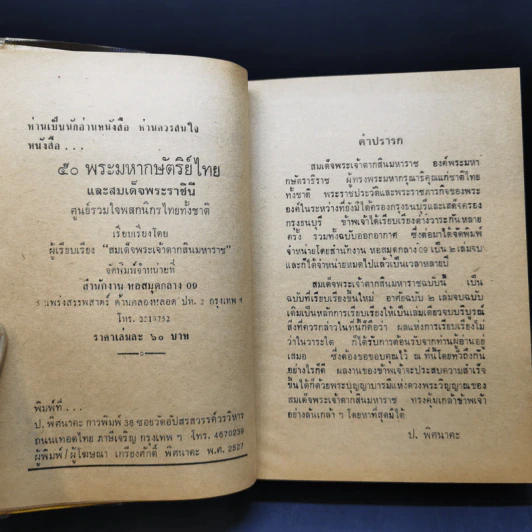 ท่านเป็นนักอ่านหนังสือ ท่านควรสนใจ
หนังสือ . . .
๕๐ พระมหากษัตริย์ไทย
และสมเด็จพระราชินี
ศูนย์รวมใจพสกนิกรไทยทั้งชาติ
เรียบเรียงโดย
ผู้เรียบเรียง “สมเด็จพระเจ้าตากสินมหาราช”
จัดพิมพ์จำหน่ายที่
สำนักงาน หอสมุดกลาง 09
แพร่งสรรพสาตร์ ตำบลคลองหลอด ปท. 2 กรุงเทพ ฯ
โทร.
ราคาเล่มละ ๖๐ บาท
พิมพ์ที่ . . .
ป. พิศนาคะ การพิมพ์ 38 ซอยวัดอัปสรสวรรค์วรวิหาร
ถนนเทอดไทย ภาษีเจริญ กรุงเทพ ฯ โทร. 4670239
ผู้พิมพ์/ผู้โฆษณา เกรียงศักดิ์ พิศนาคะ พ.ศ. 2527
คำปรารภ
สมเด็จพระเจ้าตากสินมหาราช องค์พระมหา
กษัตราธิราช ผู้ทรงพระมหากรุณาธิคุณแก่ชาติไทย
ทั้งชาติ พระราชประวัติและพระราชภารกิจของพระ
องค์ในระหว่างที่ยังมิได้ครองกรุงธนบุรีและเสด็จครอง
กรุงธนบุรี ข้าพเจ้าได้เรียบเรียงต่างวาระกันหลาย
ครั้ง รวมทั้งฉบับออกอากาศ ซึ่งต่อมาได้จัดพิมพ์
จำหน่ายโดยสำนักงาน หอสมุดกลาง 09 เป็น ๒ เล่มจบ
และก็ได้จำหน่ายหมดไปแล้วเป็นเวลาหลายปี
สมเด็จพระเจ้าตากสินมหาราชฉบับนี้ เป็น
ฉบับที่เรียบเรียงขึ้นใหม่ อาศัยฉบับ ๒ เล่มจบฉบับ
เดิมเป็นหลักการเรียบเรียงให้เป็นเล่มเดียวจบบริบูรณ์
สิ่งที่ควรกล่าวในที่นี้ก็คือว่า ผลแห่งการเรียบเรียงไม่
ว่าในวาระใด ก็ได้รับการต้อนรับจากท่านผู้อ่านอย่
เสมอ ซึ่งต้องขอขอบคุณไว้ ณ ที่นี้โดยทั่วถึงกัน
อย่างไรก็ดี ผลงานของข้าพเจ้าจะประสบความสำเร็จ
ขึ้นได้ก็ด้วยพระบุญญาบารมีแห่งดวงพระวิญญาณของ
สมเด็จพระเจ้าตากสินมหาราช ทรงคุ้มเกล้าข้าพเจ้า
อย่างล้นเกล้า ฯ โดยหาที่สุดมิได้
ป. พิศนาคะ